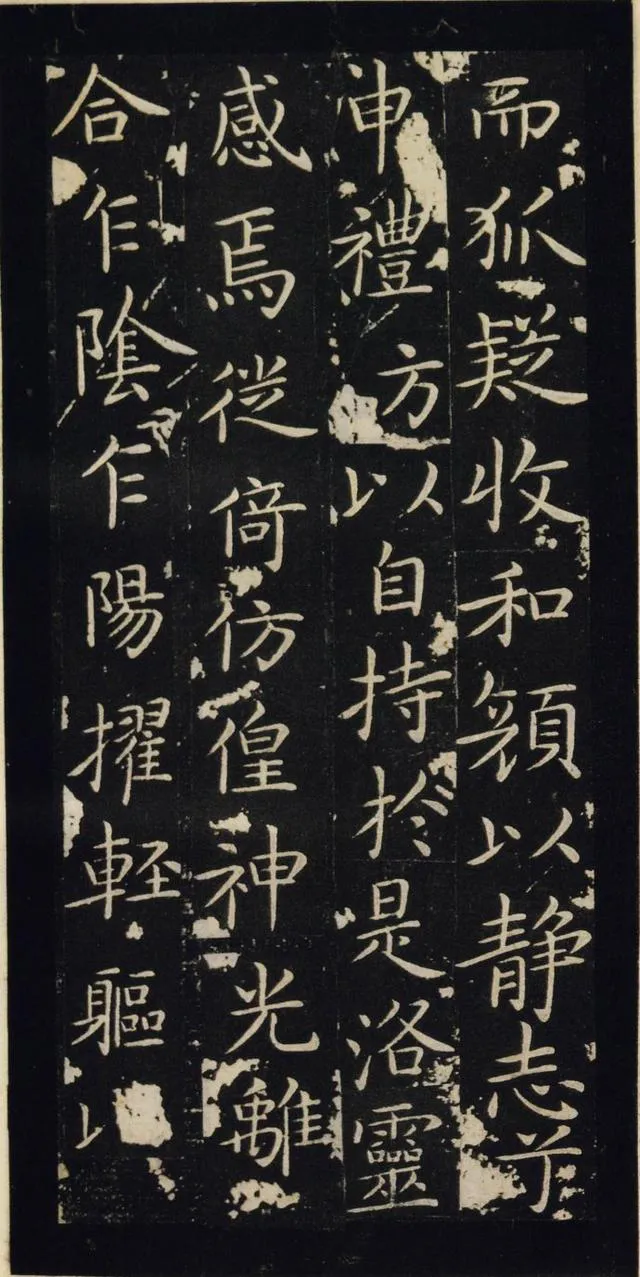 而狐疑收和顔以静志兮
申禮方以自持於是洛靈
感焉徙倚仿偟神光離
合乍陰乍陽擢輕軀